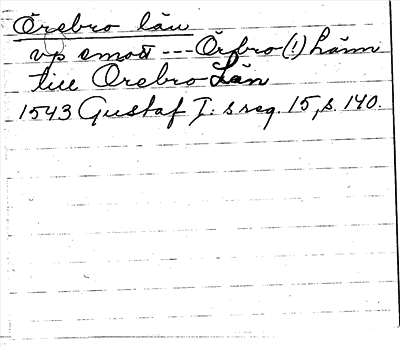 Örebro län
vp emott --- Örbro(!) Länn
till Örebro Län
1543 Gustaf I:s reg. 15, s. 140.